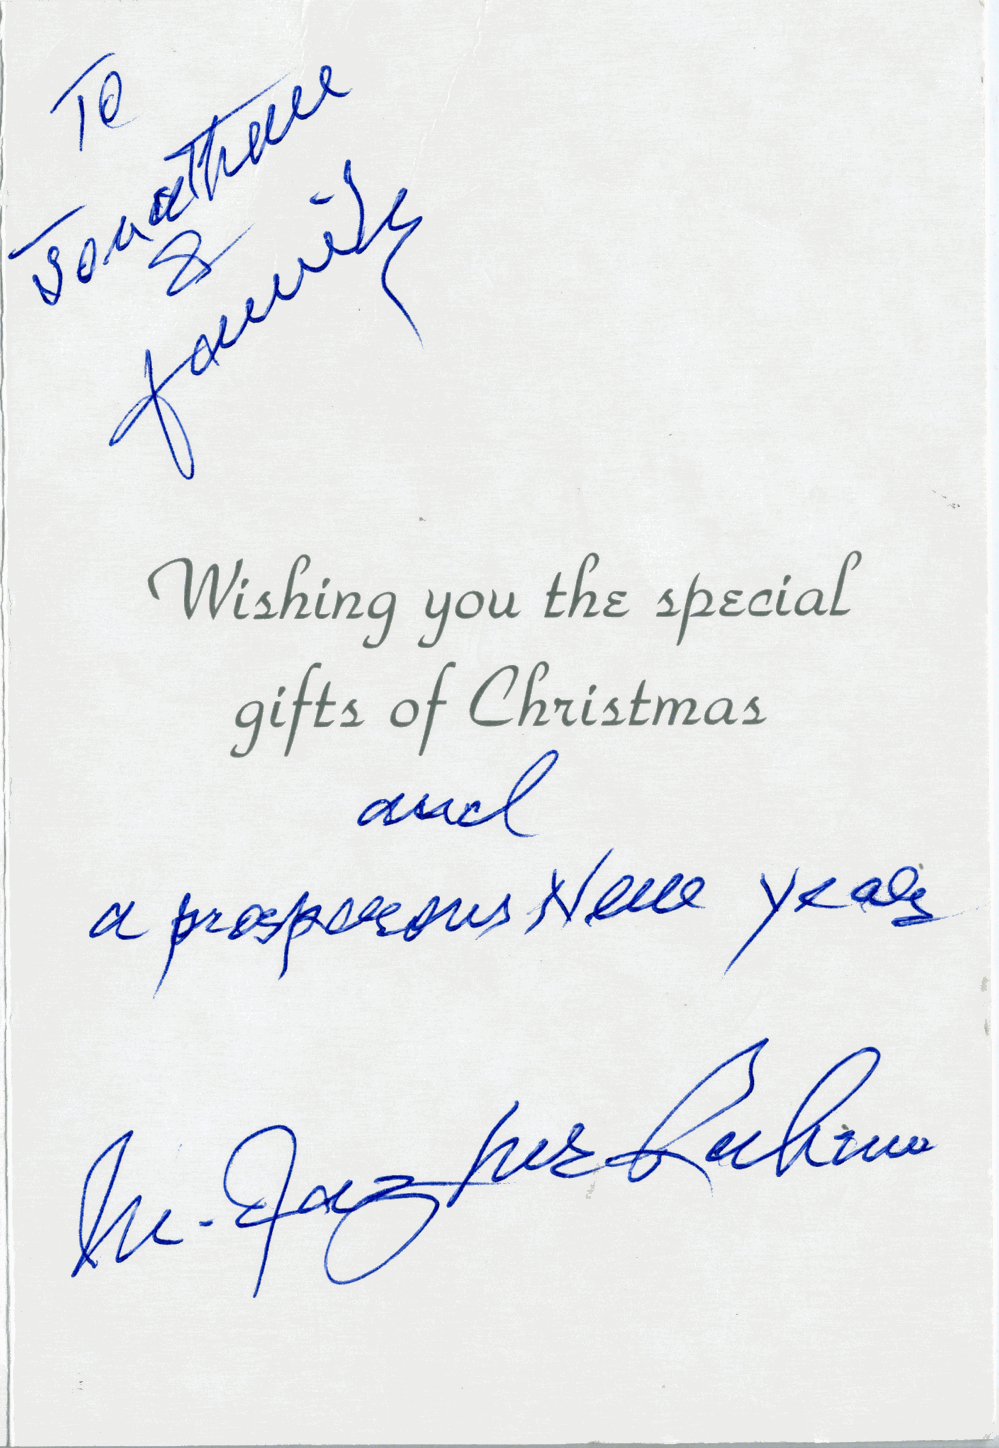 To
Jonathan
&
family
Wishing you the special
gifts of Christmas
and
a prosperous New Year
M. Fazlur Rahman